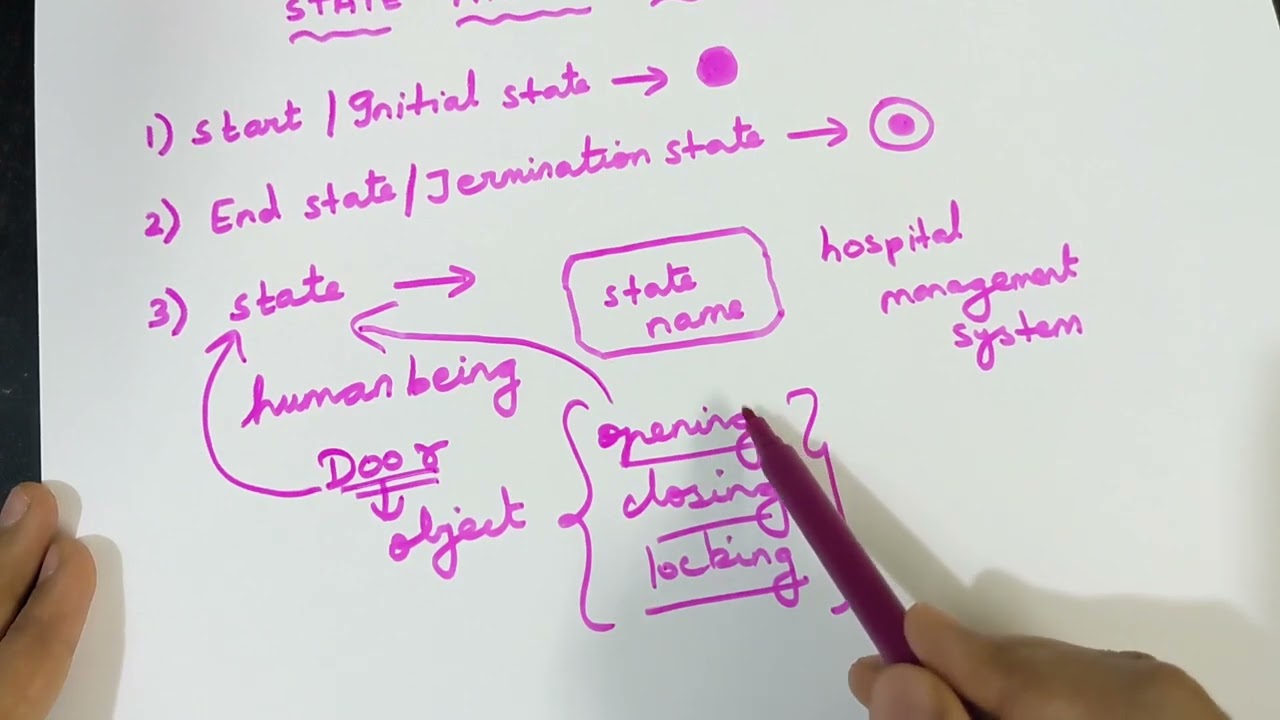 STATE
1) Start / Initial state →
2) End state / Termination state →
3) state →
state
name
hospital
management
system
human being
Door
object
opening
closing
locking